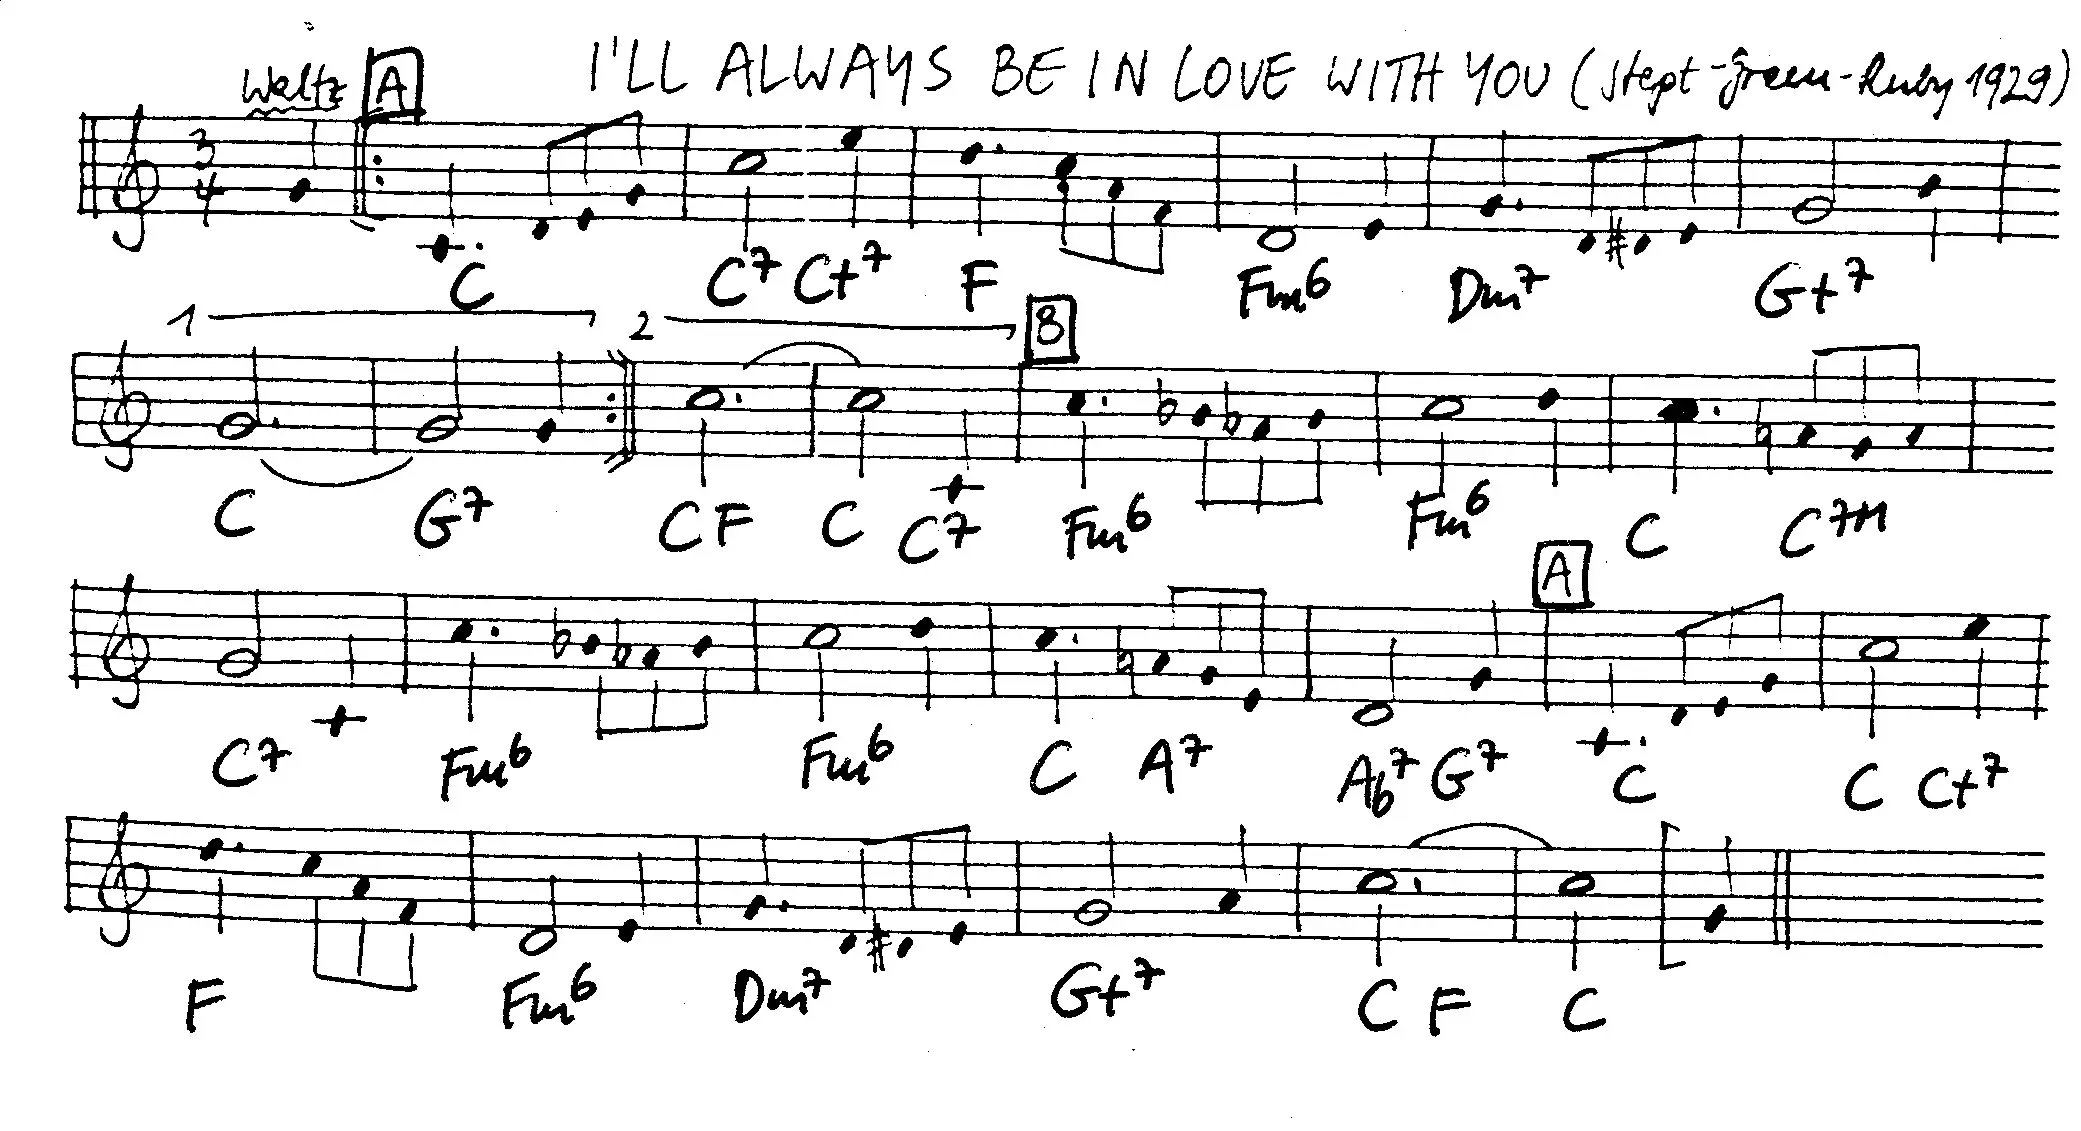 I'LL ALWAYS BE IN LOVE WITH YOU (Stept-Green-Ruby 1929)
Waltz A
3
4
C C7 C+7 F Fm6 Dm7 G+7
1 2 B
C G7 C F C C7 Fm6 Fm6 C C7M
A
C7 Fm6 Fm6 C A7 Ab7 G7 C C C+7
F Fm6 Dm7 G+7 C F C